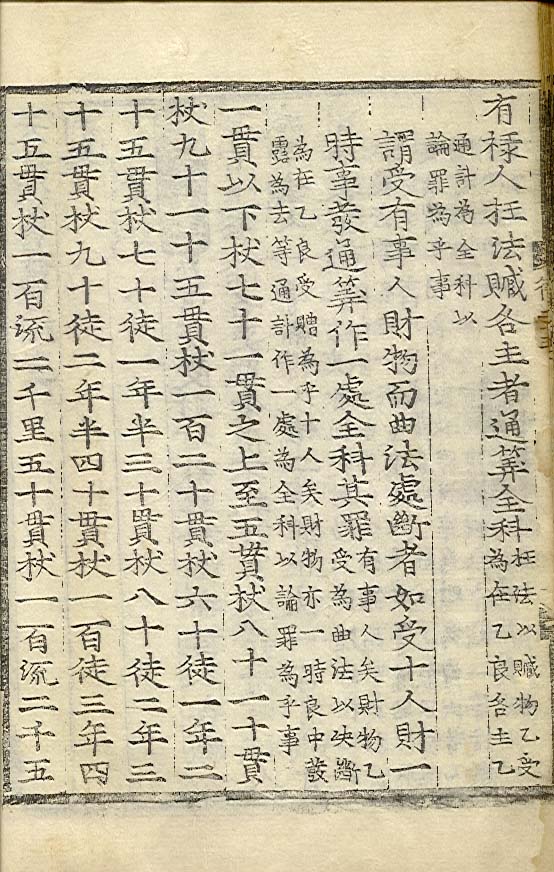 有祿人枉法贓各主者通筭全科枉法以贓物乙受
為在乙良各主乙
通計為全科以
論罪為乎事
謂受有事人財物而曲法處斷者如受十人財一
時事發通筭作一處全科其罪有事人矣財物乙
受為曲法以决斷
為在乙良受贈為乎十人矣財物亦一時良中發
露為去等通計作一處為全科以論罪為乎事
一貫以下杖七十一貫之上至五貫杖八十一十貫
杖九十一十五貫杖一百二十貫杖六十徒一年二
十五貫杖七十徒一年半三十貫杖八十徒二年三
十五貫杖九十徒二年半四十貫杖一百徒三年四
十五貫杖一百流二千里五十貫杖一百流二千五